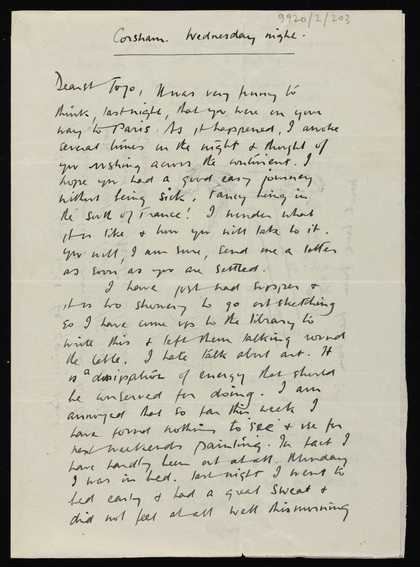 9920/2/203
Corsham. Wednesday night.
Dearest Tojo, It was very funny to
think, last night, that you were on your
way to Paris. As it happened, I awoke
several times in the night & thought of
you rushing across the continent. I
hope you had a good easy journey
without being sick. Fancy being in
the South of France! I wonder what
it is like & how you will take to it.
You will, I am sure, send me a letter
as soon as you are settled.
I have just had supper &
it is too showery to go out sketching
so I have come up to the library to
write this & left them talking round
the table. I hate talk about art. It
is a dissipation of energy that should
be conserved for doing. I am
annoyed that so far this week I
have found nothing to see & use for
next weekends painting. In fact I
have hardly been out at all. Monday
I was in bed. last night I went to
bed early & had a great sweat &
did not feel at all well this morning